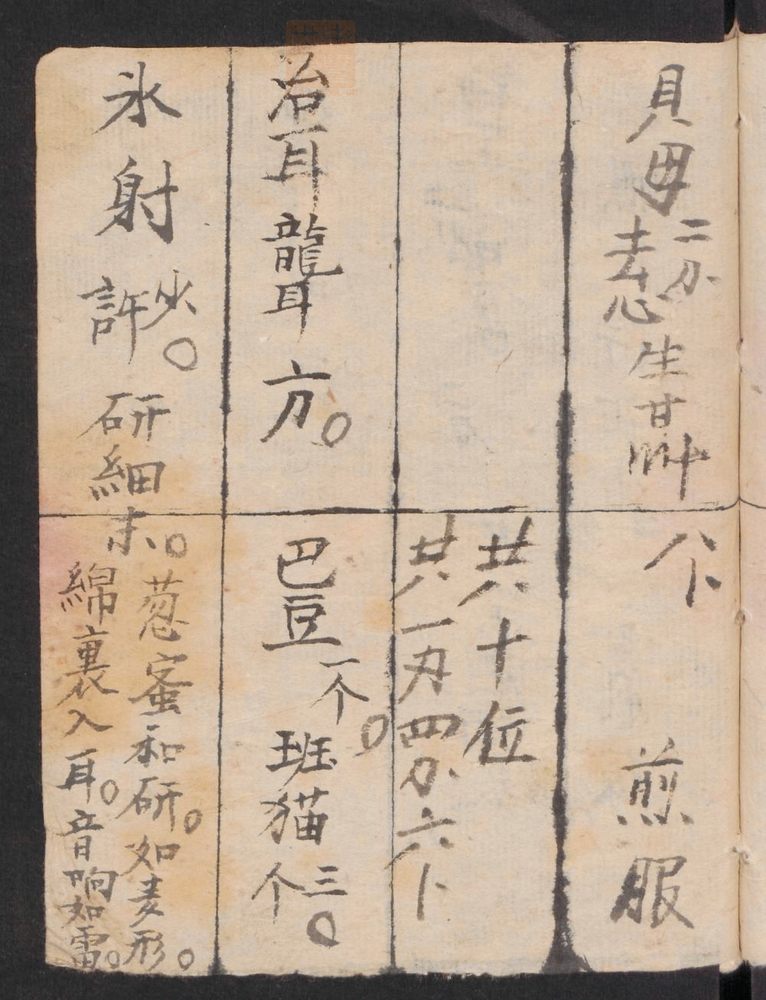 貝母二分去心生甘艸
煎服
共十位
共一刄四分六卜
治耳聾方。
巴豆一个。班猫三个。
氷射少許。研細末。
葱蜜和研。如麦形。
綿裹入耳。音响如雷。